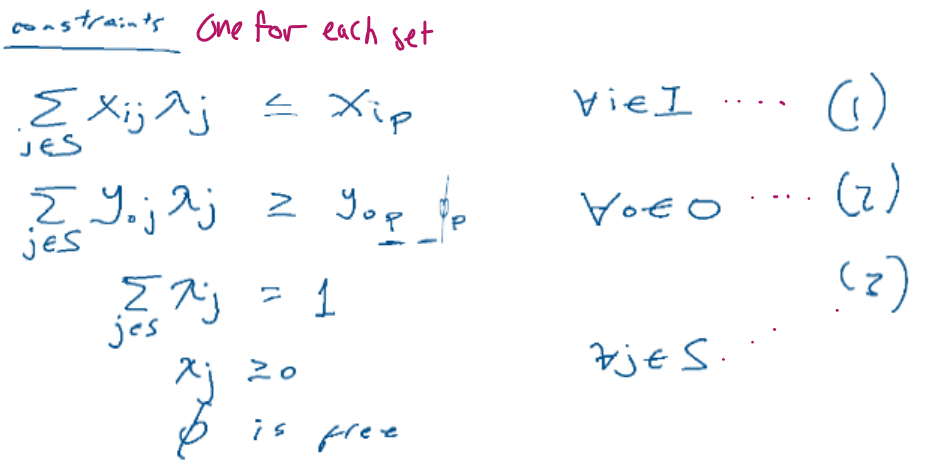 constraints One for each set
∑_{j∈S} x_{ij} λ_j ≤ x_{ip} ∀i∈I .... (1)
∑_{j∈S} y_{oj} λ_j ≥ y_{op} ϕ_p ∀o∈O .... (2)
∑_{j∈S} λ_j = 1 (3)
λ_j ≥0 ∀j∈S....
ϕ is free